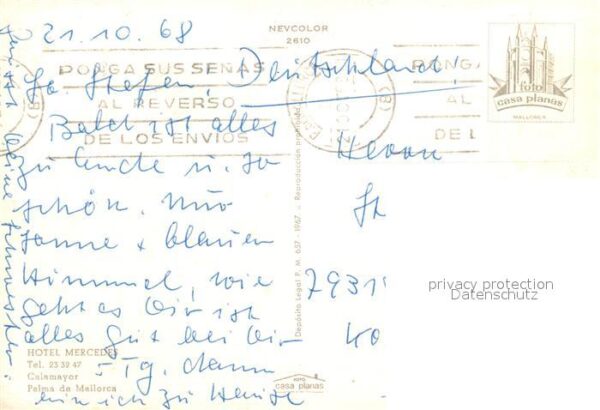 21.10.68
NEVCOLOR
2610
PONGA SUS SEÑAS
AL REVERSO
DE LOS ENVIOS
PONGA
AL
DE L
foto
casa planas
MALLORCA
Stefan, Deutschland!
Bald ist alles
zu Ende u. so
schön. Nur
Sonne + blauen
Himmel, wie
geht es Dir ist
alles gut bei Dir
5 Tg. dann
bin ich zu Hause
deine Schwester.
Herrn
St
7931
Ko
HOTEL MERCEDES
Tel. 23 39 47
Calamayor
Palma de Mallorca
Depósito Legal P. M. 657 - 1967 - Reproducción
FOTO
casa planas
privacy protection
Datenschutz